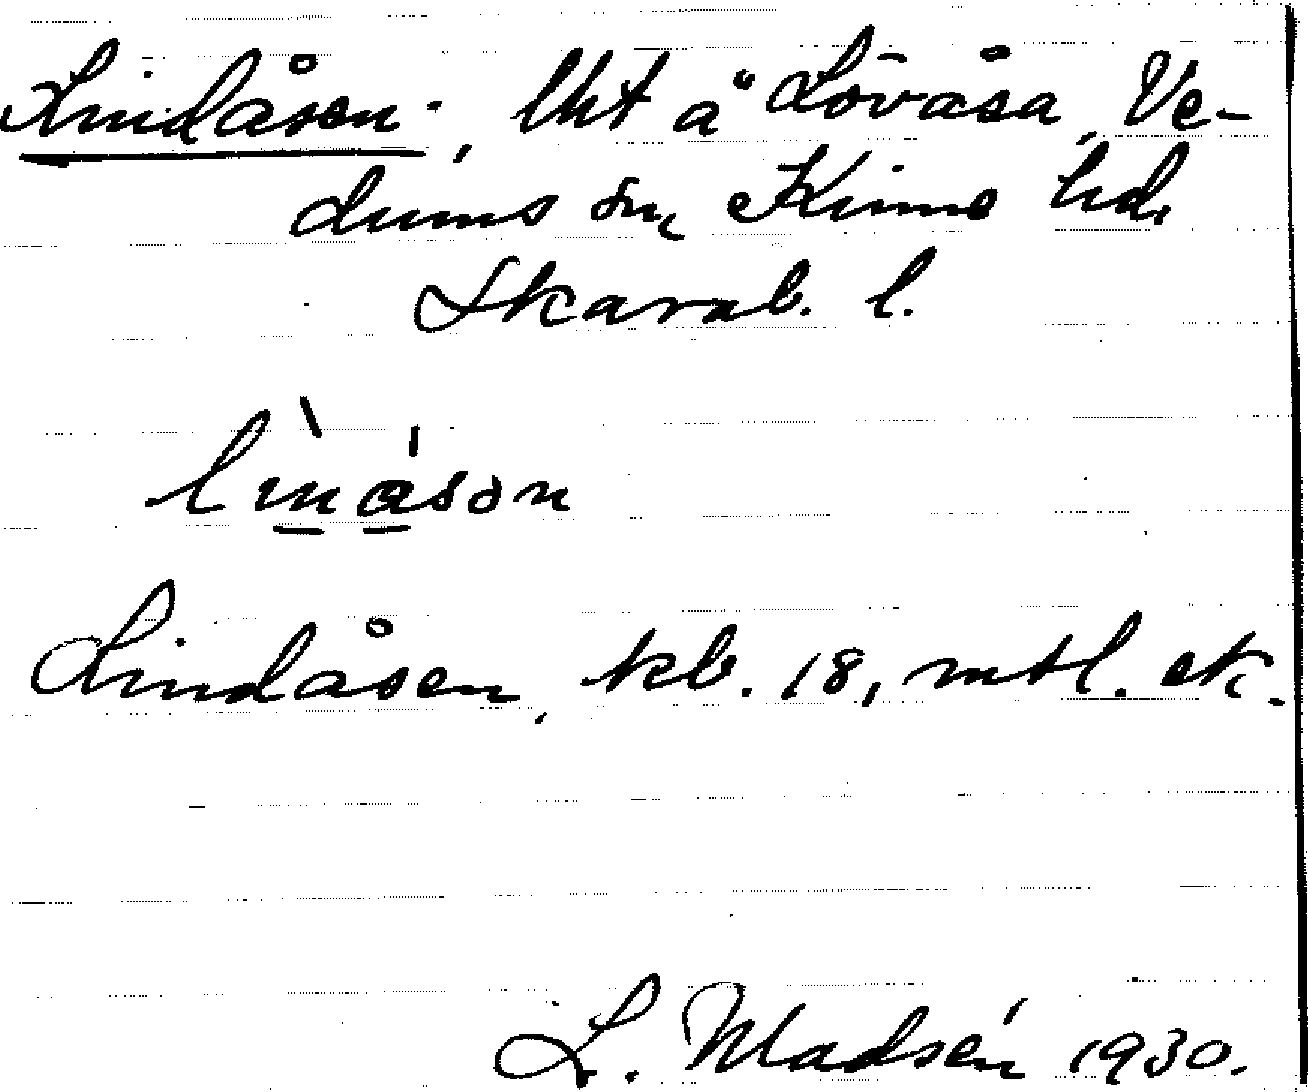 Lindåsen, Uht å Lövåsa, Ve-
dums sn, Kinne hd,
Skarab. l.
lìnásən
Lindåsen, kb. 18, mtl. ek.
L. Madsén 1930.